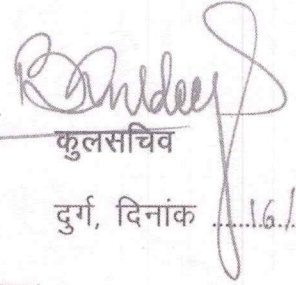 कुलसचिव
दुर्ग, दिनांक ....16/